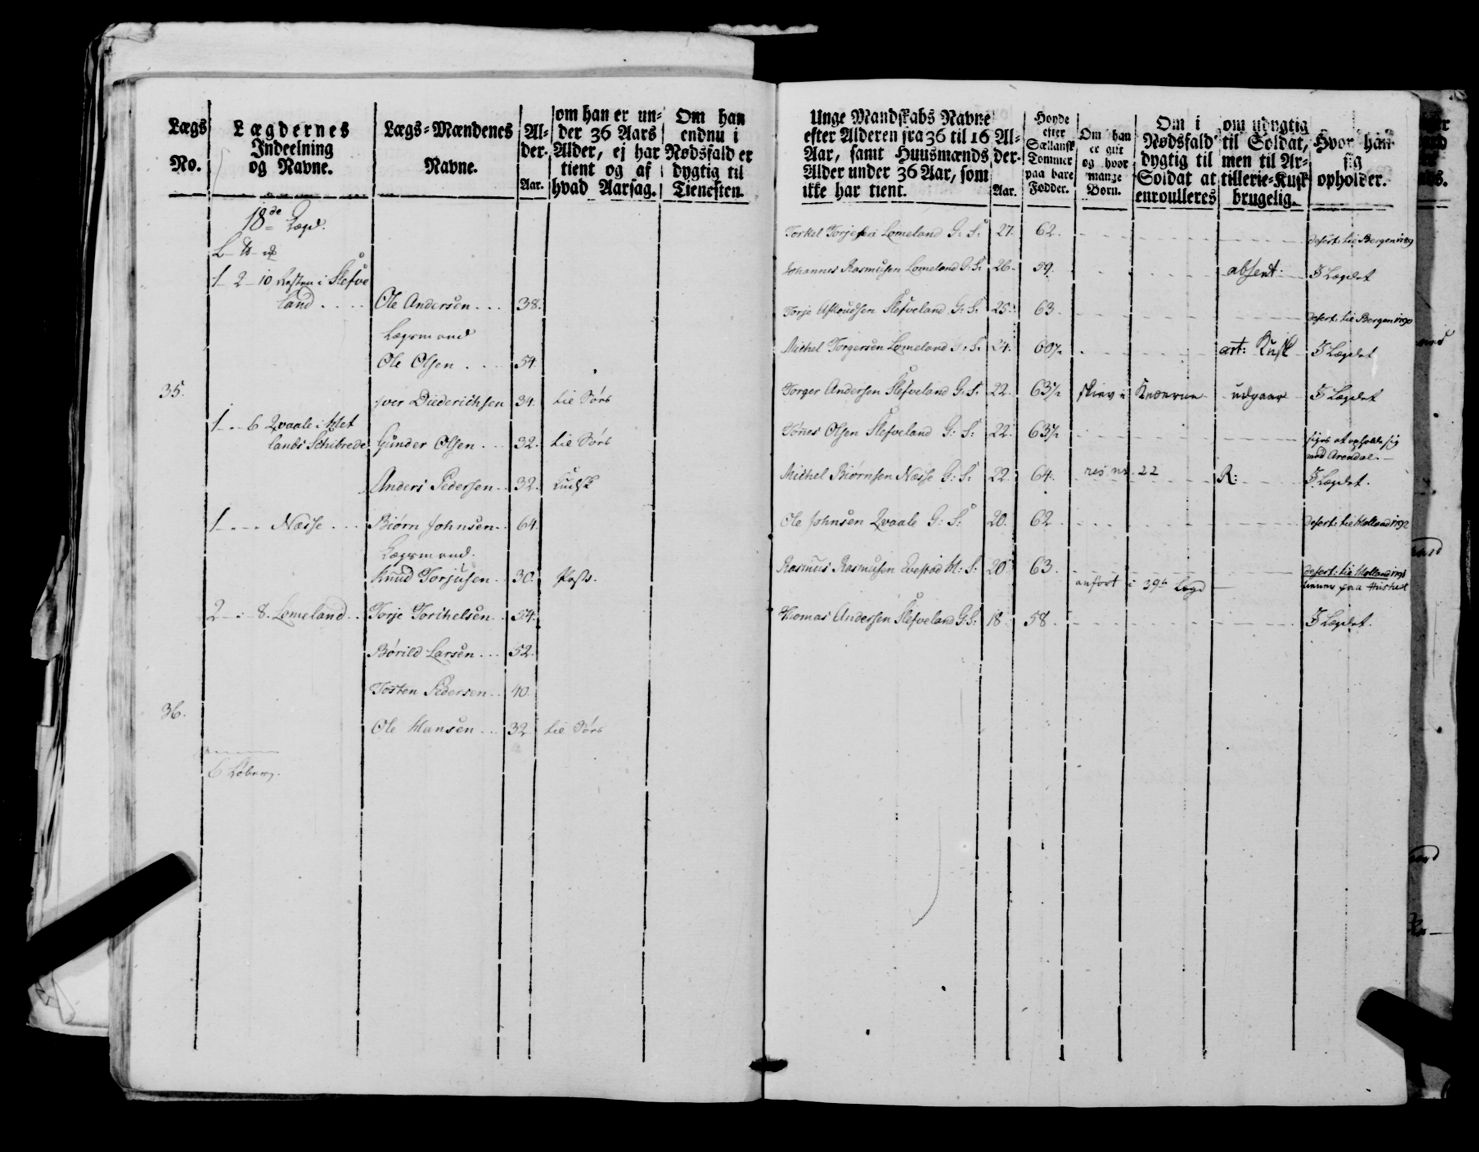 Lægs No.
Lægdernes Indeelning og Navne.
Lægs-Mændenes Navne.
Alder. Aar.
om han er under 36 Aars Alder, ej har tient og af hvad Aarsag.
Om han endnu i Nødsfald er dygtig til Tienesten.
18de Lægd.
1 2 - 10 Resten i Slefve
land . . . . Ole Andersen . . . 38.
Lægsmand
Ole Olsen . . . . 54
35.
Iver Diederichsen 34. til Søes
1 - 6 Qvaale i
Gunder Olsen . . . 32. til Søes
Anders Pedersen . . 32. Kudsk
1 . . . Næsse . . . Biørn Johnsen . . 64.
Lægsmand.
Knud Torjusen . . 30.
2 - 8. Lomeland . . Torje Torkelsen . . 54.
Børild Larsen . . . 52.
Tosten Pedersen . . 40.
36.
Ole Hansen . . . 32. til Søes
Unge Mandskabs Navne efter Alderen fra 36 til 16 Aar, samt Huusmænds Alder under 36 Aar, som ikke har tient.
Alder. Aar.
Høyde efter Siællansk Tommer paa bare Fødder.
Om han er gift og hvor mange Børn.
Om i Nødsfald dygtig til Soldat at enroulleres
om udygtig til Soldat, men til Artillerie-Kusk brugelig.
Hvor han sig opholder.
Torkel Torjesen Lomeland G: S: 27. 62. desert: til Bergen 1789
Johannes Rasmusen Lomeland G: S: 26. 59. absent: I Lægdet
Torje Asloudsen Slefveland G: S: 25. 63. desert: til Bergen 1790
Michel Torgersen Lomeland G: S: 24. 60½ art: Kusk I Lægdet
Torger Andersen Slefveland G: S: 22. 63½ udgaar I Lægdet
Tønes Olsen Slefveland G: S: 22. 63½ siges at opholde sig
ved Arendal.
Michel Biørnsen Næsse G: S: 22. 64. res no 22 R: I Lægdet.
Ole Johnsen Qvaale G: S: 20. 62. desert: til Holland 1792
Rasmus Rasmusen Evestad H: S: 20 63. desert: til Holland
anført i 39te Lægd
Thomas Andersen Slefveland G: S: 18. 58. I Lægdet.